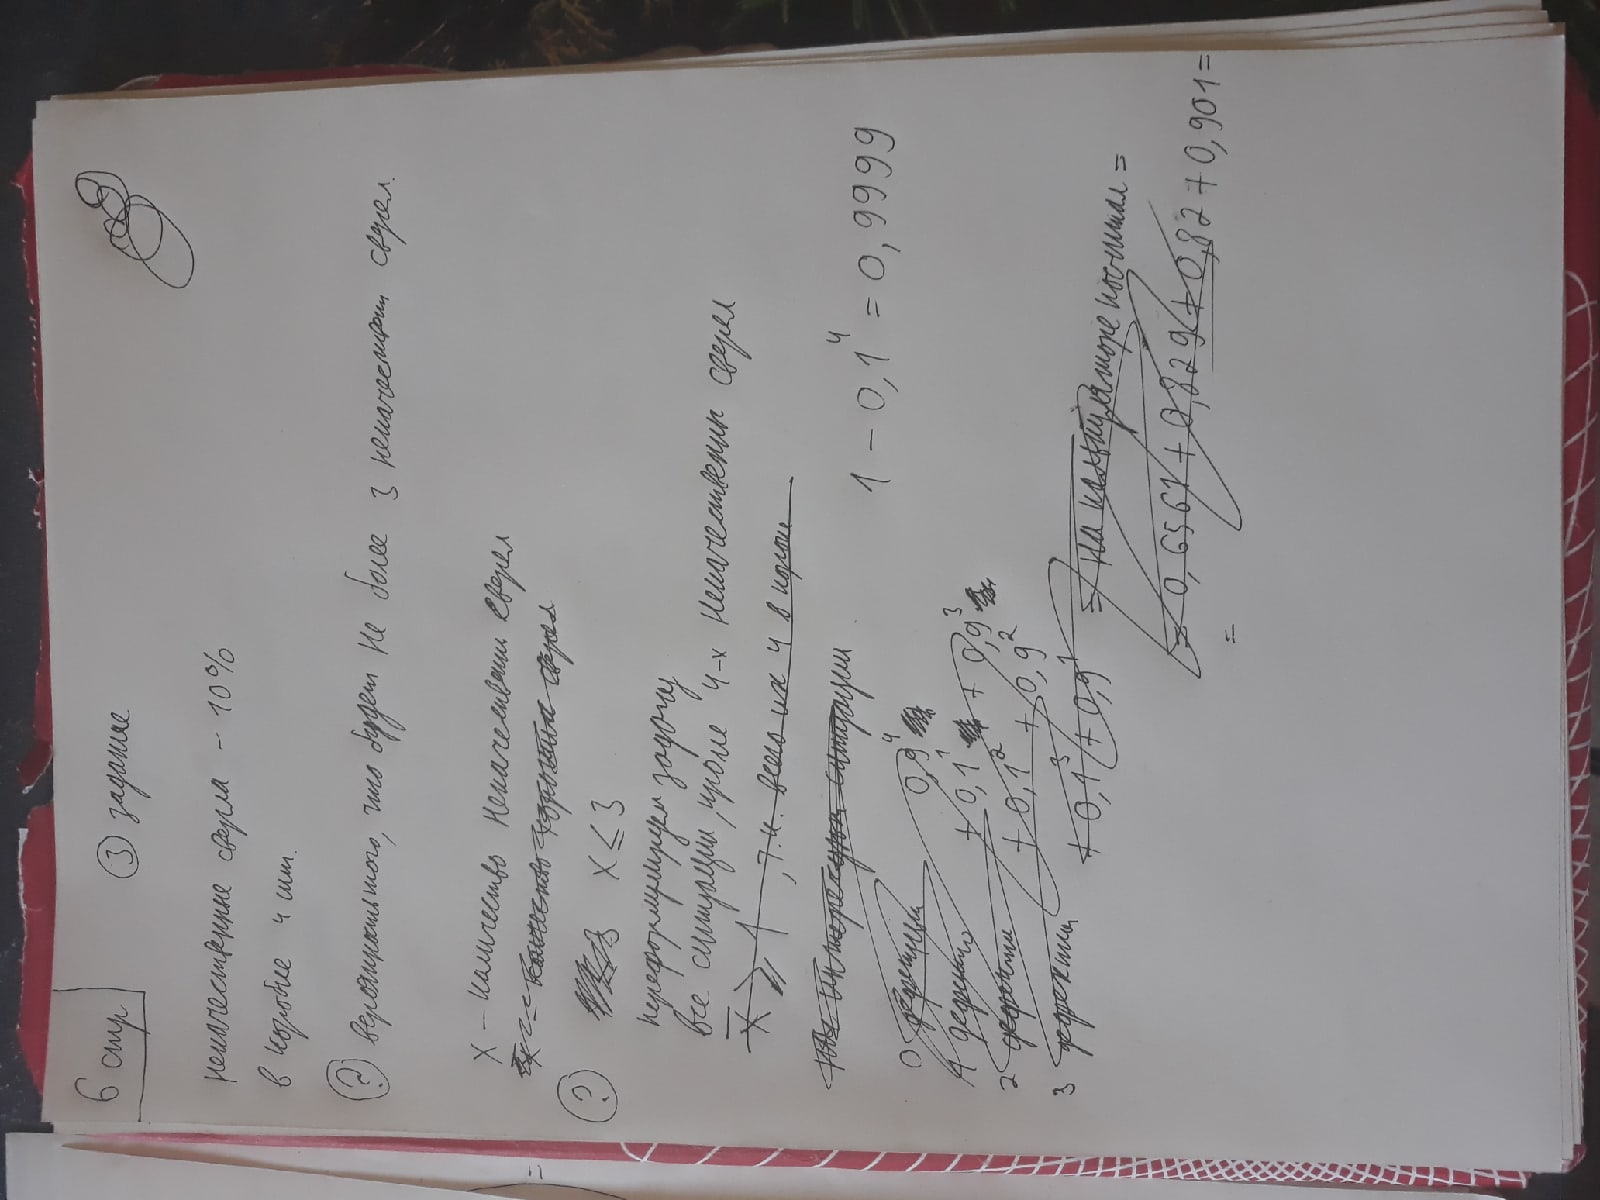 6 стр
③ задание
некачественные сверла – 10%
в коробке 4 шт.
? вероятность того, что будет не более 3 некачествен сверел.
X – количество некачествен сверел
x̄ – качество хороших сверел
? X ≤ 3
переформулируем задачу
все ситуации, кроме 4-х некачественных сверел
x̄ ⩾ 1, т.к. всего их 4 в короб
нас интересуют ситуации
1 – 0,1⁴ = 0,9999
0 дефектных 0,9⁴
1 дефектно + 0,1¹ + 0,9³
2 дефекта + 0,1² + 0,9²
3 дефектных + 0,1³ + 0,9¹ = на калькуляторе посчитал =
= 0,6561 + 0,829 + 0,82 + 0,901 =
=